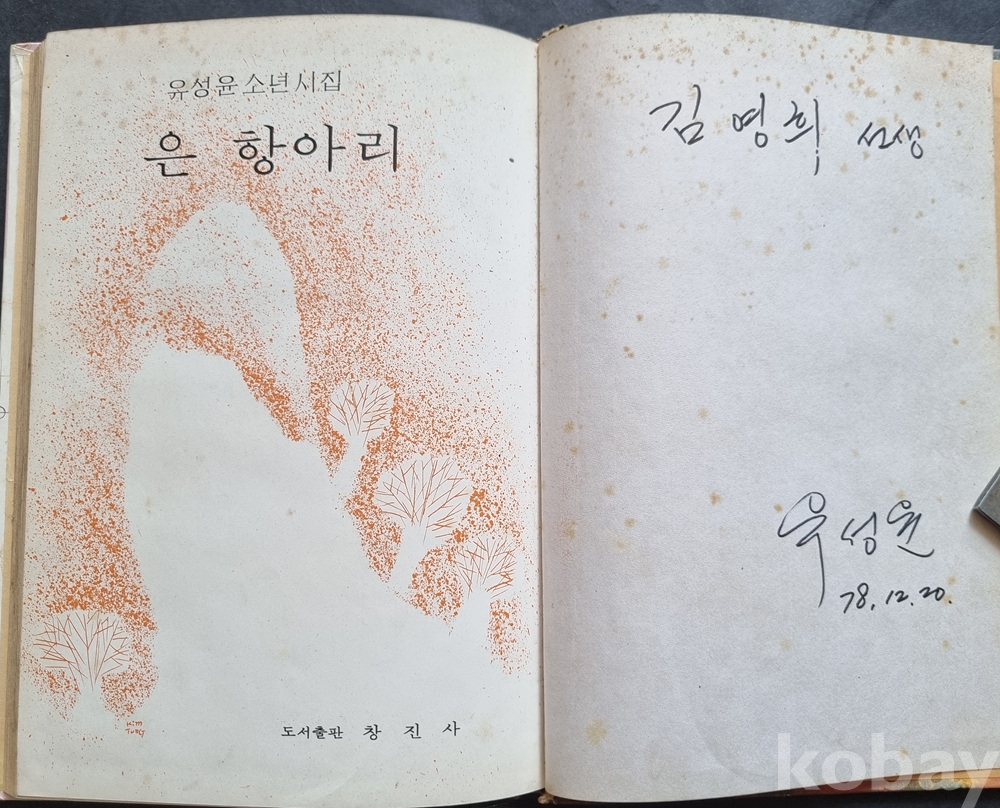 유성윤 소년시집
은 항아리
Kim
도서출판 창진사
김영희 선생
유성윤
78. 12. 20.
kobay